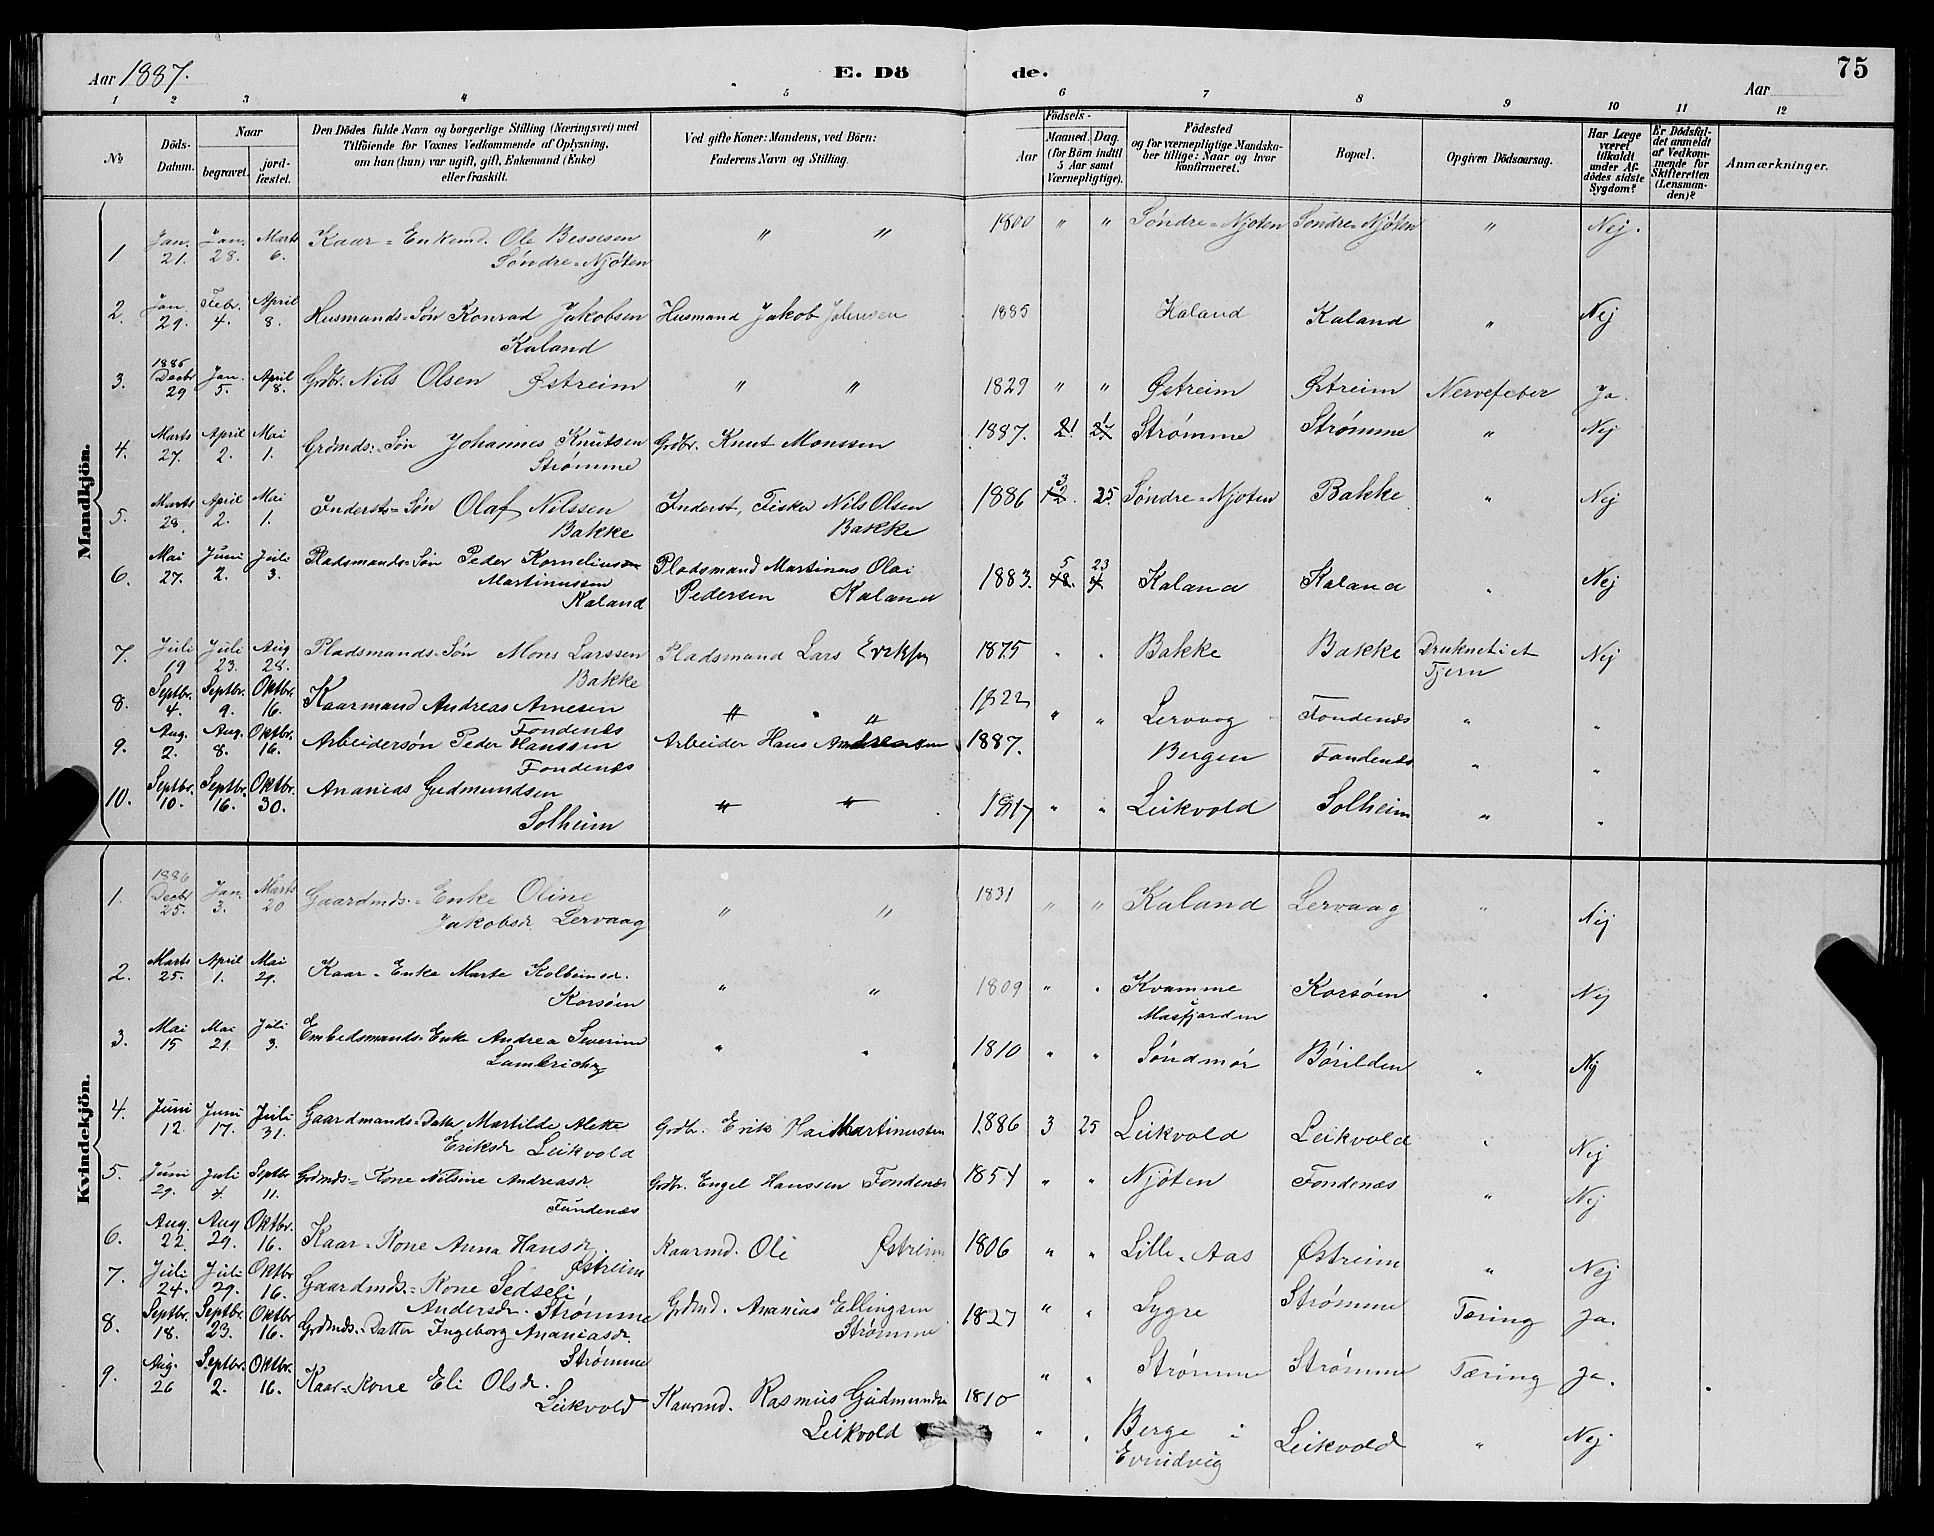 Aar 1887. E. Dö de. Aar 75
1 2 3 4 5 6 7 8 9 10 11 12
No Döds-Datum. Naar begravet. jord-fæstet. Den Dödes fulde Navn og borgerlige Stilling (Næringsvei) med Tilföiende for Voxnes Vedkommende af Oplysning, om han (hun) var ugift, gift, Enkemand (Enke) eller fraskilt. Ved gifte Koner: Mandens, ved Börn: Faderens Navn og Stilling. Födsels- Aar Maaned. Dag. (for Börn indtil 5 Aar samt Værnepligtige). Födested og for værnepligtige Mandskaber tillige: Naar og hvor konfirmeret. Bopæl. Opgiven Dödsaarsag. Har Læge været tilkaldt under Afdödes sidste Sygdom? Er Dödsfaldet anmeldt af Vedkommende for Skifteretten (Lensmanden)? Anmærkninger.
Mandkjön.
1 Jan. 21. Jan. 28. Marts 6. Kaar-Enkemd. Ole Bessesen " " 1800 " " Söndre-Njöten Söndre-Njöten " Nej.
Söndre-Njöten
2. Jan. 29. Febr. 4. April 8. Husmands-Sön Konrad Jakobsen Husmand Jakob 1885 Kaland Kaland " Nej
Kaland
3. 1886 Decbr 29 Jan. 5. April 8. Grdbr. Nils Olsen Østreim " " 1829 " " Østreim Østreim Nervefeber Ja.
4. Marts 27. April 2. Mai 1. Grdmds.-Sön Johannes Knutsen Grdbr. Knut Monssen 1887. Strömme Strömme " Nej
Strömme
5. Marts 28. April 2. Mai 1. Inderst-Sön Olaf Nilssen Inderst, Fisker Nils Olsen 1886 3 25 Söndre-Njöten Bakke " Nej
Bakke Bakke
6. Mai 27. Juni 2. Juli 3. Pladsmands-Sön Peder Kornelius Pladsmand Martinus Olai 1883. 5 23 Kaland Kaland " Nej
Martinussen Pedersen Kaland
Kaland
7. Juli 19 Juli 23. Aug 28. Pladsmands-Sön Mons Larssen Pladsmand Lars Eriksen 1875 " " Bakke Bakke Druknet i et Tjern Nej
Bakke
8. Septbr. 4. Septbr. 9. Oktbr. 16. Kaarmand Andreas Arnesen " " " 1822 " " Lervaag Fondenæs " "
Fondenæs
9. Aug. 2. Aug. 8. Oktbr. 16. Arbeidersön Peder Hanssen Arbeider Hans Andreassen 1887. Bergen Fondenæs " "
Fondenæs
10. Septbr. 10. Septbr. 16. Oktbr. 30. Ananias Gudmundsen " " 1817 " " Leikvold Solheim " "
Solheim
Kvindekjön.
1. 1886 Decbr 25. Jan. 3. Marts 20 Gaardmds.-Enke Oline " " 1831 " " Kaland Lervaag " Nej
Jakobsdr. Lervaag
2. Marts 25. April 1. Mai 29. Kaar-Enke Marte Kolbeinsdr. " " 1809 " " Kvamme Korsöen " Nej
Korsöen Masfjorden
3. Mai 15 Mai 21. Juli 3. Embedsmands-Enke Andrea Severine " " 1810 " " Söndmör Börilden " Nej
4. Juni 12. Juni 17. Juli 31. Gaardmands-Datter Martilde Aletta Grdbr. Erik Martinussen 1886 3 25 Leikvold Leikvold " Nej
Eriksdr Leikvold
5. Juni 29. Juli 4. Septbr 11. Grdmds-Kone Nilsine Andreasdr Grdbr. Engel Hanssen Fondenæs 1854 " " Njöten Fondenæs " Nej
Fundenæs
6. Aug. 22. Aug 29. Oktbr. 16. Kaar-Kone Anna Hansdr. Kaarmd. Ole Østreim 1806 " " Lille-Aas Østreim " Nej
Østreim
7. Juli 24. Juli 29. Oktbr 16. Gaardmds.-Kone Sedseli Grdmd. Ananias Ellingsen 1827 " " Sygre Strömme Tæring Ja.
Andersdr. Strömme Strömme
8. Septbr. 18. Septbr. 23. Oktbr 16. Grdmds.-Datter Ingeborg Ananiasdr. " " Strömme Strömme Tæring Ja.
Strömme
9. Aug. 26 Septbr. 2. Oktbr. 16. Kaar-Kone Eli Olsdr. Kaarmd. Rasmus Gudmundsen 1810 " " Berge i Leikvold " Nej
Leikvold Leikvold Evindvig